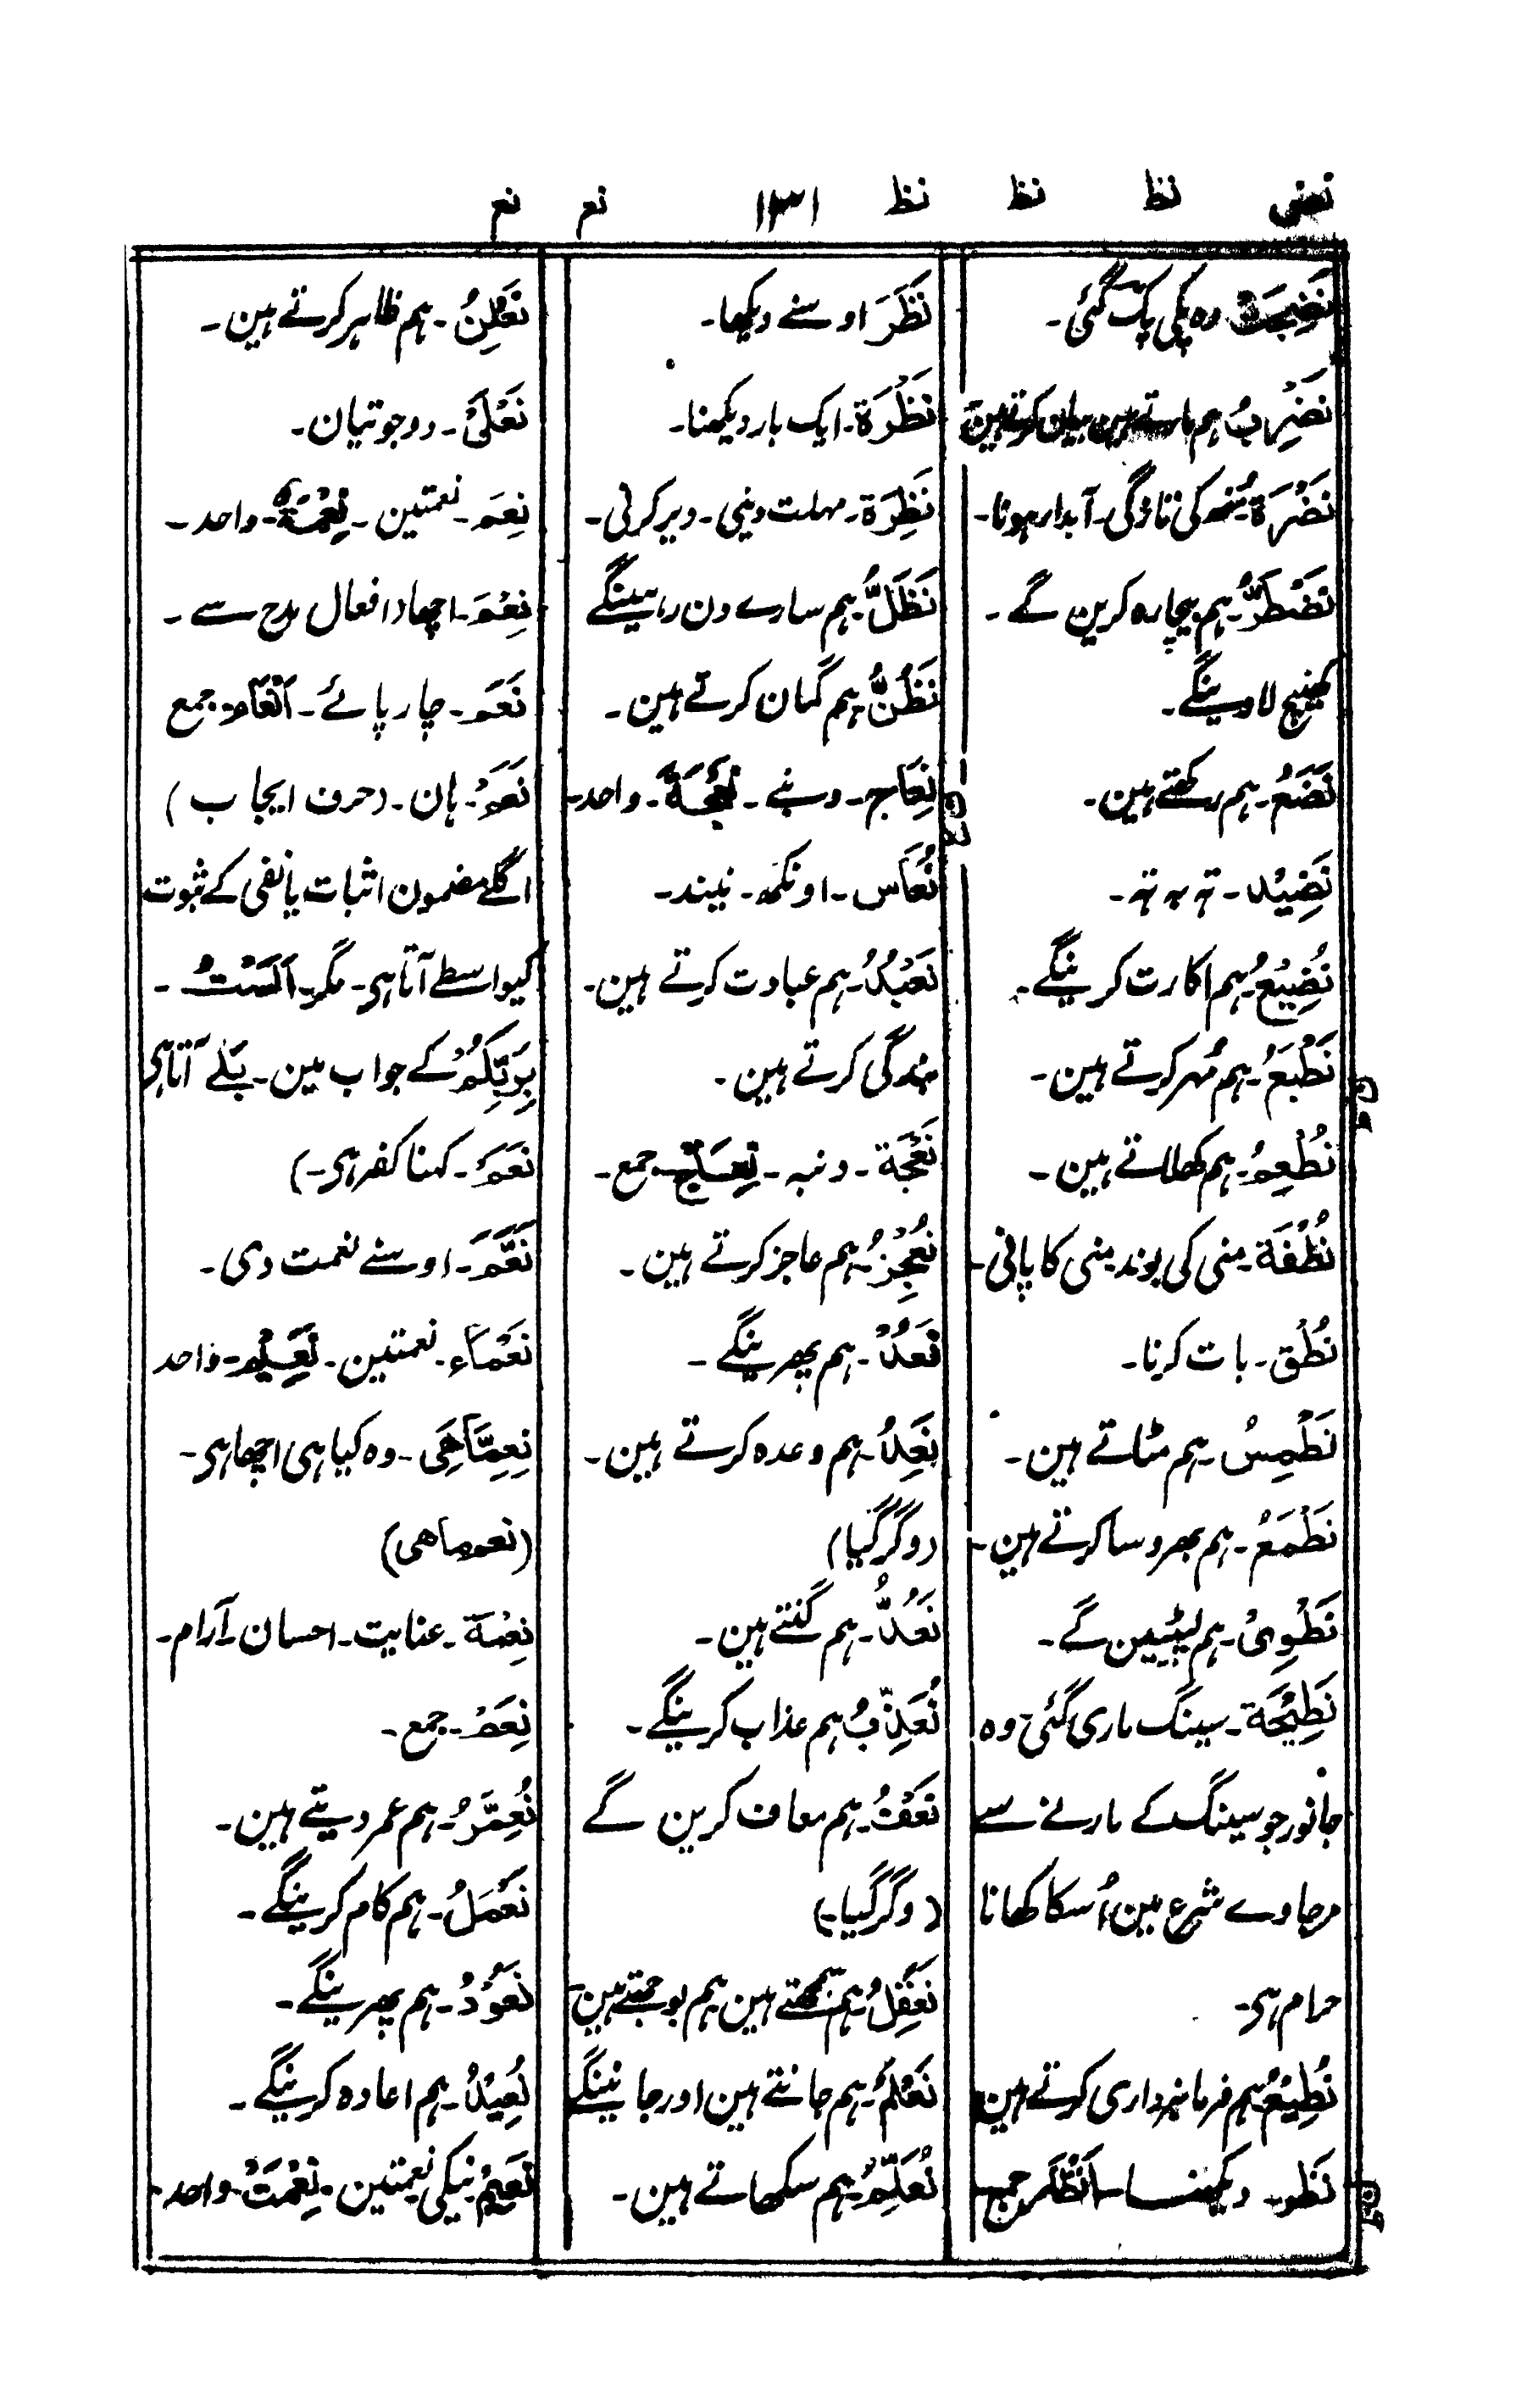 نض نظ نظ نظ ۱۳۱ نع نع
نَضِجَتْ وہ پکی پک گئی۔
نَضْرِبُ ہم مارتے ہین بیان کرتے ہین
نَضْرَة۔ مُنھ کی تازگی۔ آبدار ہونا۔
نَضْطَرُّ۔ ہم بیچارہ کرین گے۔
کھینچ لاوینگے۔
نَضَعُ۔ ہم رکھتے ہین۔
نَضِیْد۔ تہ بہ تہ۔
نُضِیْعُ۔ ہم اکارت کرینگے۔
نَطْبَعُ۔ ہم مُہر کرتے ہین۔
نُطْعِمُ۔ ہم کھلاتے ہین۔
نُطْفَة۔ منی کی بوند۔ منی کا پانی۔
نُطْق۔ بات کرنا۔
نَطْمِسُ۔ ہم مٹاتے ہین۔
نَطْمَعُ۔ ہم بھروسا کرتے ہین۔
نَطْوِیْ۔ ہم لپیٹین گے۔
نَطِیْحَة۔ سینگ ماری گئی وہ
جانور جو سینگ کے مارنے سے
مرجاوے شرع مین اُسکا کھانا
حرام ہی۔
نُطِیْعُ۔ ہم فرمانبرداری کرتے ہین
نَظَر۔ دیکھنا۔ اَنْظَار جمع۔
نطع
نظر
نَظَرَ اوسنے دیکھا۔
نَظْرَة۔ ایک بار دیکھنا۔
نَظِرَة۔ مہلت دینی۔ دیر کرنی۔
نَظَلُّ۔ ہم سارے دن رہینگے
نَظُنُّ۔ ہم گمان کرتے ہین۔
نِعَاج۔ دنبے۔ نَعْجَة۔ واحد۔
نُعَاس۔ اونگھ۔ نیند۔
نَعْبُدُ۔ ہم عبادت کرتے ہین۔
بندگی کرتے ہین۔
نَعْجَة۔ دنبہ۔ نِعَاج۔ جمع۔
نُعْجِزُ۔ ہم عاجز کرتے ہین۔
نَعُدْ۔ ہم پھرینگے۔
نَعِدُ۔ ہم وعدہ کرتے ہین۔
(و گر گیا)
نَعُدُّ۔ ہم گنتے ہین۔
نُعَذِّبُ ہم عذاب کرینگے۔
نَعْفُ۔ ہم معاف کرین گے
(و گر گیا۔)
نَعْقِلُ۔ ہم سمجھتے ہین ہم بوجھتے ہین
نَعْلَمُ۔ ہم جانتے ہین اور جانینگے
نُعَلِّمُ۔ ہم سکھاتے ہین۔
نُعْلِنُ۔ ہم ظاہر کرتے ہین۔
نَعْلَیْ۔ دو جوتیان۔
نِعَم۔ نعمتین۔ نِعْمَة۔ واحد۔
نِعْمَ۔ اچھا (افعال مدح سے۔
نَعَم۔ چارپائے۔ اَنْعَام۔ جمع
نَعَمْ۔ ہان۔ (حرف ایجاب)
اگلے مضمون اثبات یا نفی کے ثبوت
کیواسطے آتا ہی۔ مگر۔ اَلَسْتُ۔
بِرَبِّکُمْ کے جواب مین۔ بَلٰے آتا ہی
نَعَمْ۔ کہنا کفر ہی۔)
نَعَّمَ۔ اوسنے نعمت دی۔
نَعْمَاء۔ نعمتین۔ نَعِیْم۔ واحد
نِعِمَّاهِیَ۔ وہ کیا ہی اچھا ہی۔
(نعم ماهی)
نِعْمَة۔ عنایت۔ احسان۔ آرام۔
نِعَمْ۔ جمع۔
نُعَمِّرُ۔ ہم عمر دیتے ہین۔
نَعْمَلُ۔ ہم کام کرینگے۔
نَعُوْدُ۔ ہم پھرینگے۔
نُعِیْدُ۔ ہم اعادہ کرینگے۔
نَعِیْم۔ نیکی نعمتین۔ نِعْمَتْ۔ واحد۔